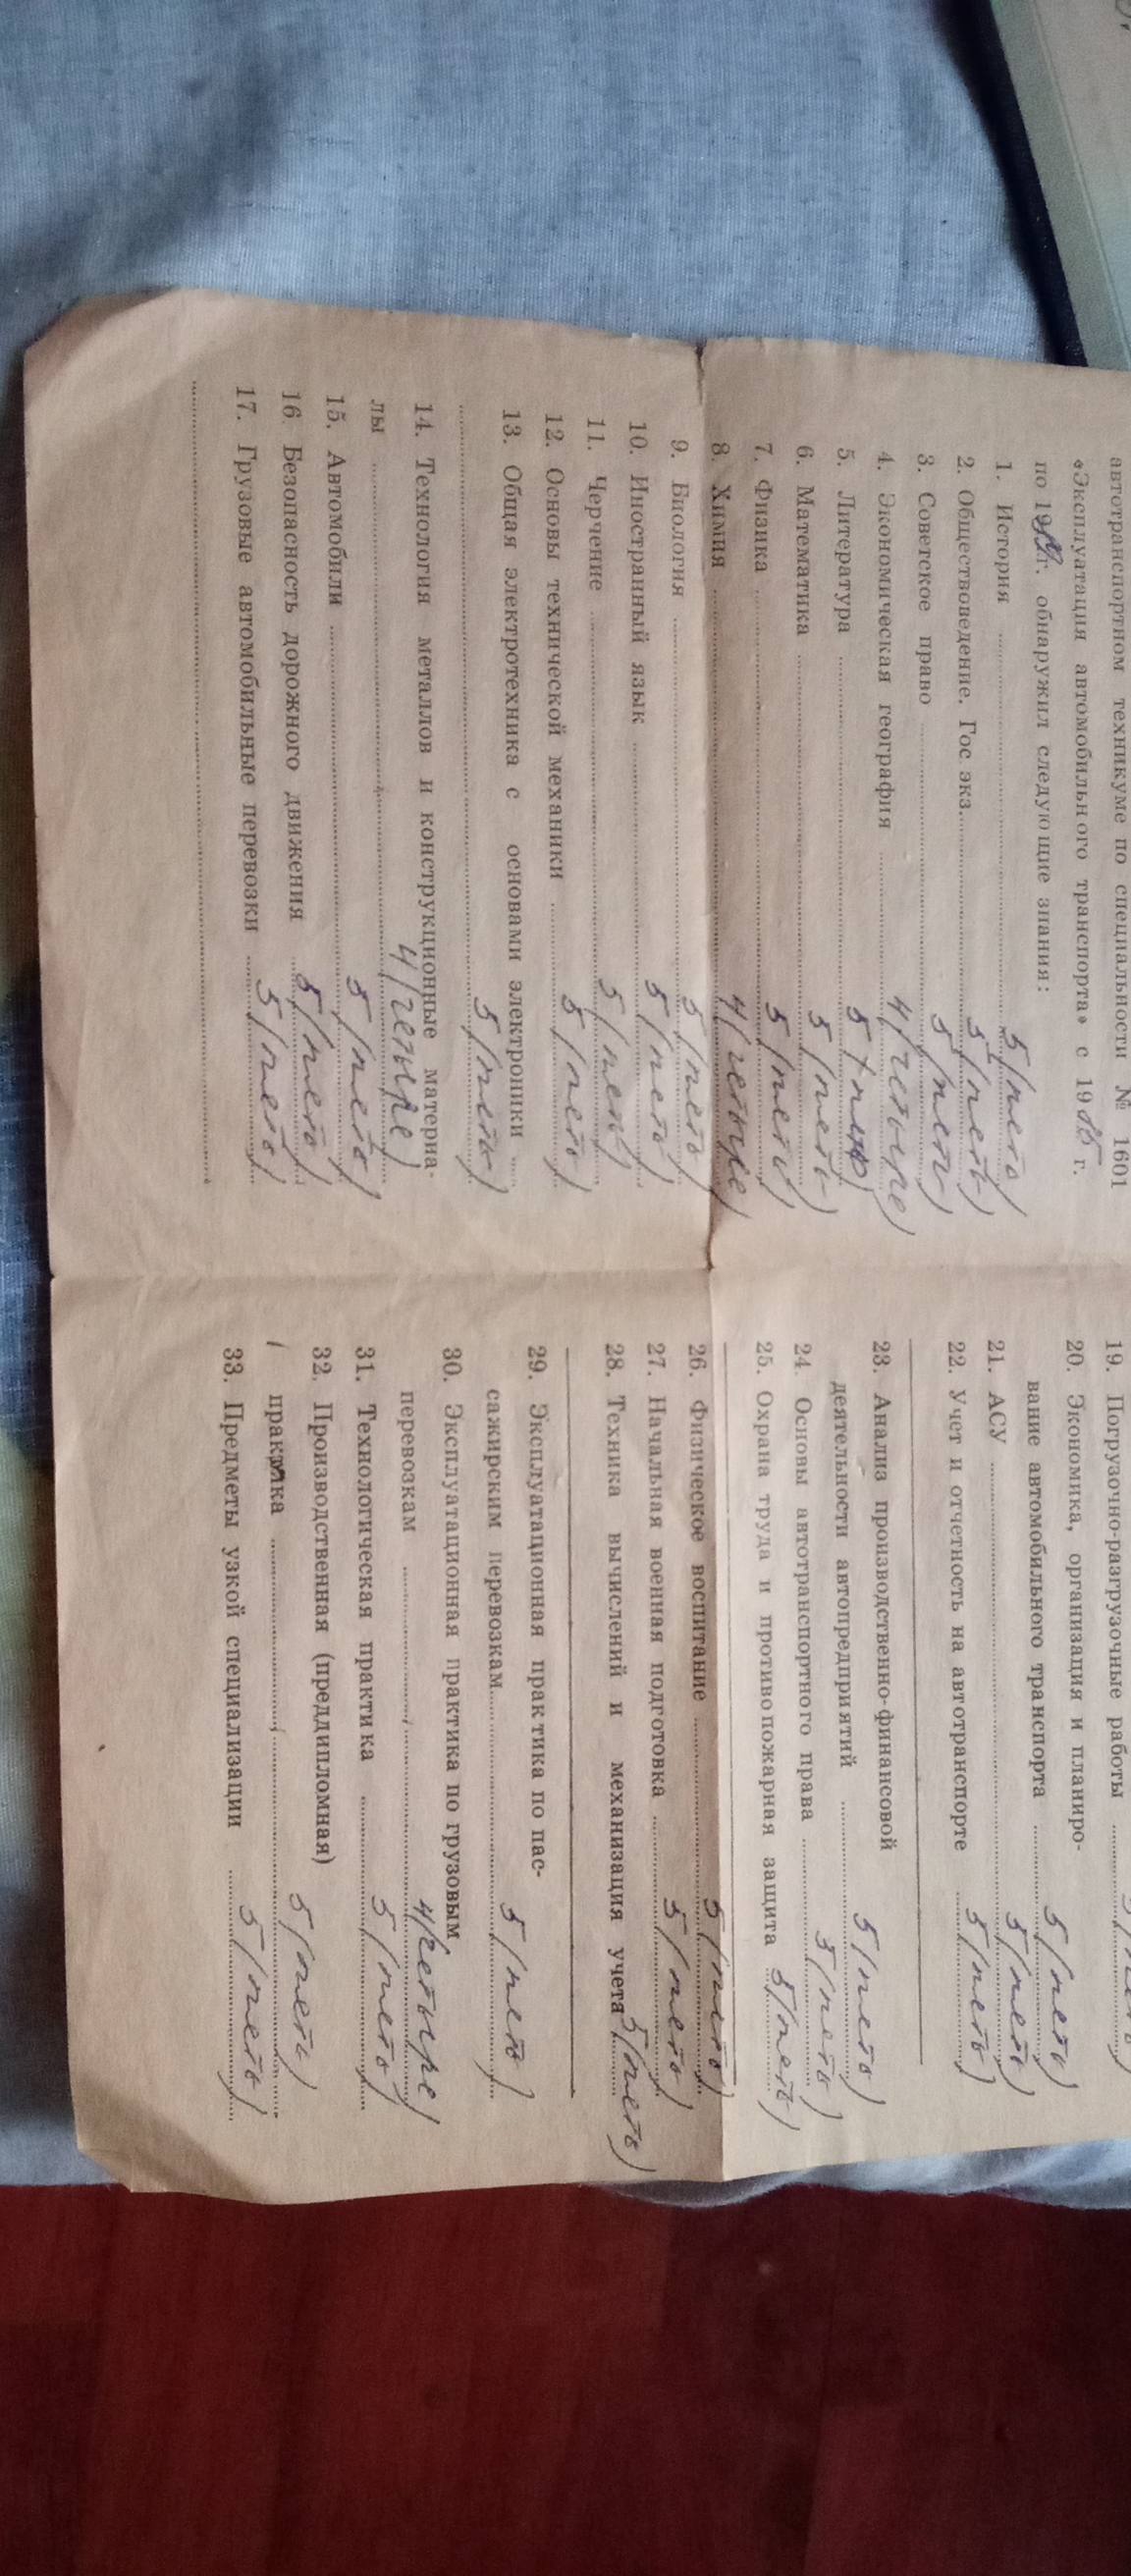 автотранспортном техникуме по специальности № 1601
«Эксплуатация автомобильного транспорта» с 19 г.
по 1989г. обнаружил следующие знания:
1. История 5 (пять)
2. Обществоведение. Гос. экз. 5 (пять)
3. Советское право 5 (пять)
4. Экономическая география 4 (четыре)
5. Литература 5 (пять)
6. Математика 5 (пять)
7. Физика 5 (пять)
8. Химия 4 (четыре)
9. Биология 5 (пять)
10. Иностранный язык 5 (пять)
11. Черчение 5 (пять)
12. Основы технической механики 5 (пять)
13. Общая электротехника с основами электроники
5 (пять)
14. Технология металлов и конструкционные материа-
лы 4 (четыре)
15. Автомобили 5 (пять)
16. Безопасность дорожного движения 5 (пять)
17. Грузовые автомобильные перевозки 5 (пять)
19. Погрузочно-разгрузочные работы
20. Экономика, организация и планиро-
вание автомобильного транспорта 5 (пять)
21. АСУ 5 (пять)
22. Учет и отчетность на автотранспорте 5 (пять)
23. Анализ производственно-финансовой
деятельности автопредприятий 5 (пять)
24. Основы автотранспортного права 5 (пять)
25. Охрана труда и противопожарная защита 5 (пять)
26. Физическое воспитание 5 (пять)
27. Начальная военная подготовка 5 (пять)
28. Техника вычислений и механизация учета 5 (пять)
29. Эксплуатационная практика по пас-
сажирским перевозкам 5 (пять)
30. Эксплуатационная практика по грузовым
перевозкам 4 (четыре)
31. Технологическая практика 5 (пять)
32. Производственная (преддипломная)
практика 5 (пять)
33. Предметы узкой специализации 5 (пять)